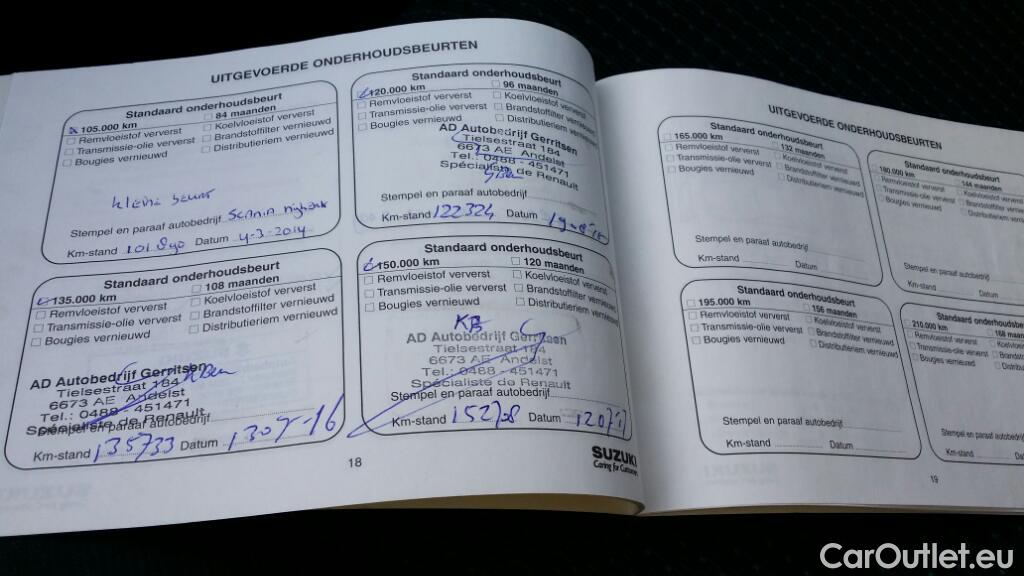 UITGEVOERDE ONDERHOUDSBEURTEN
Standaard onderhoudsbeurt
105.000 km 84 maanden
Remvloeistof ververst Koelvloeistof ververst
Transmissie-olie ververst Brandstoffilter vernieuwd
Bougies vernieuwd Distributieriem vernieuwd
kleine beurt
Stempel en paraaf autobedrijf
Km-stand Datum 4-3-2014
Standaard onderhoudsbeurt
120.000 km 96 maanden
Remvloeistof ververst Koelvloeistof ververst
Transmissie-olie ververst Brandstoffilter vernieuwd
Bougies vernieuwd Distributieriem vernieuwd
AD Autobedrijf Gerritsen
Tielsestraat 184
6673 AE Andelst
Tel.: 0488 - 451471
Spécialiste de Renault
Stempel en paraaf autobedrijf
Km-stand 122324 Datum
Standaard onderhoudsbeurt
135.000 km 108 maanden
Remvloeistof ververst Koelvloeistof ververst
Transmissie-olie ververst Brandstoffilter vernieuwd
Bougies vernieuwd Distributieriem vernieuwd
AD Autobedrijf Gerritsen
Tielsestraat 184
6673 AE Andelst
Tel.: 0488 - 451471
Spécialiste de Renault
Stempel en paraaf autobedrijf
Km-stand 135733 Datum
Standaard onderhoudsbeurt
150.000 km 120 maanden
Remvloeistof ververst Koelvloeistof ververst
Transmissie-olie ververst Brandstoffilter vernieuwd
Bougies vernieuwd Distributieriem vernieuwd
KB
AD Autobedrijf Gerritsen
Tielsestraat 184
6673 AE Andelst
Tel.: 0488 - 451471
Spécialiste de Renault
Stempel en paraaf autobedrijf
Km-stand Datum
18
SUZUKI
UITGEVOERDE ONDERHOUDSBEURTEN
Standaard onderhoudsbeurt
165.000 km 132 maanden
Remvloeistof ververst Koelvloeistof ververst
Transmissie-olie ververst Brandstoffilter vernieuwd
Bougies vernieuwd Distributieriem vernieuwd
Stempel en paraaf autobedrijf
Km-stand Datum
Standaard
180.000 km 144 maanden
Remvloeistof ververst
Transmissie-olie ververst
Bougies vernieuwd
Stempel en paraaf autobedrijf
Km-stand Datum
Standaard onderhoudsbeurt
195.000 km 156 maanden
Remvloeistof ververst Koelvloeistof ververst
Transmissie-olie ververst Brandstoffilter vernieuwd
Bougies vernieuwd Distributieriem vernieuwd
Stempel en paraaf autobedrijf
Km-stand Datum
Standaard
210.000 km 168
Remvloeistof ververst
Transmissie-olie ververst
Bougies vernieuwd
Stempel en paraaf autobedrijf
Km-stand Datum
19
CarOutlet.eu